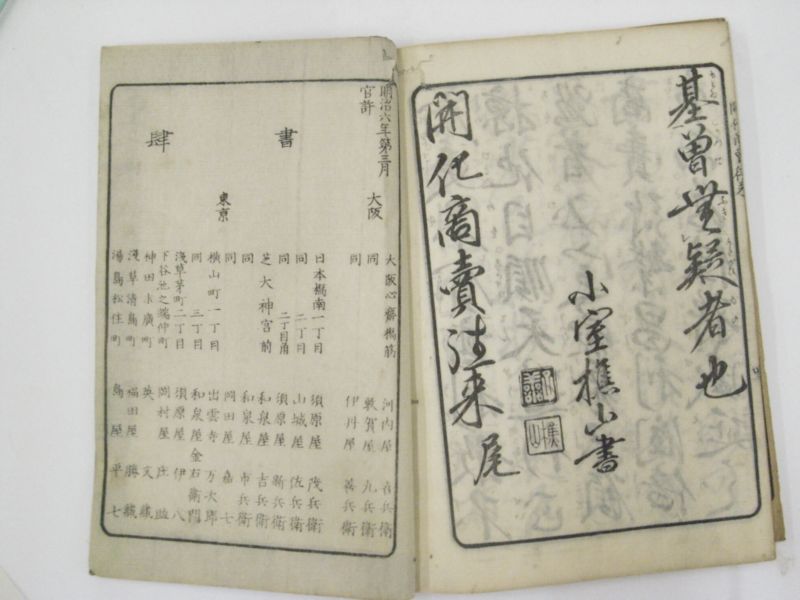 基曽無疑者也
小室樵山書
開化商賣往来 尾
明治六年第三月
官許
書肆
大阪
大阪心齋橋筋 河内屋 喜兵衛
同 敦賀屋 九兵衛
同 伊丹屋 善兵衛
東京
日本橋南一丁目 須原屋 茂兵衛
同 二丁目 山城屋 佐兵衛
同 二丁目角 須原屋 新兵衛
芝大神宮前 和泉屋 吉兵衛
同 和泉屋 市兵衛
同 岡田屋 嘉七
横山町一丁目 出雲寺 万次郎
同 三丁目 和泉屋 金右衛門
淺草茅町二丁目 須原屋 伊八
下谷池之端仲町 岡村屋 庄助
神田末廣町 英 文蔵
淺草清島町 福田屋 勝蔵
湯島松住町 島屋 平七